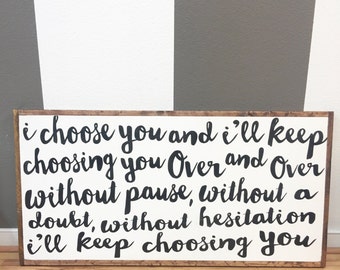 i choose you and i'll keep
choosing you Over and Over
without pause, without a
doubt, without hesitation
i'll keep choosing you